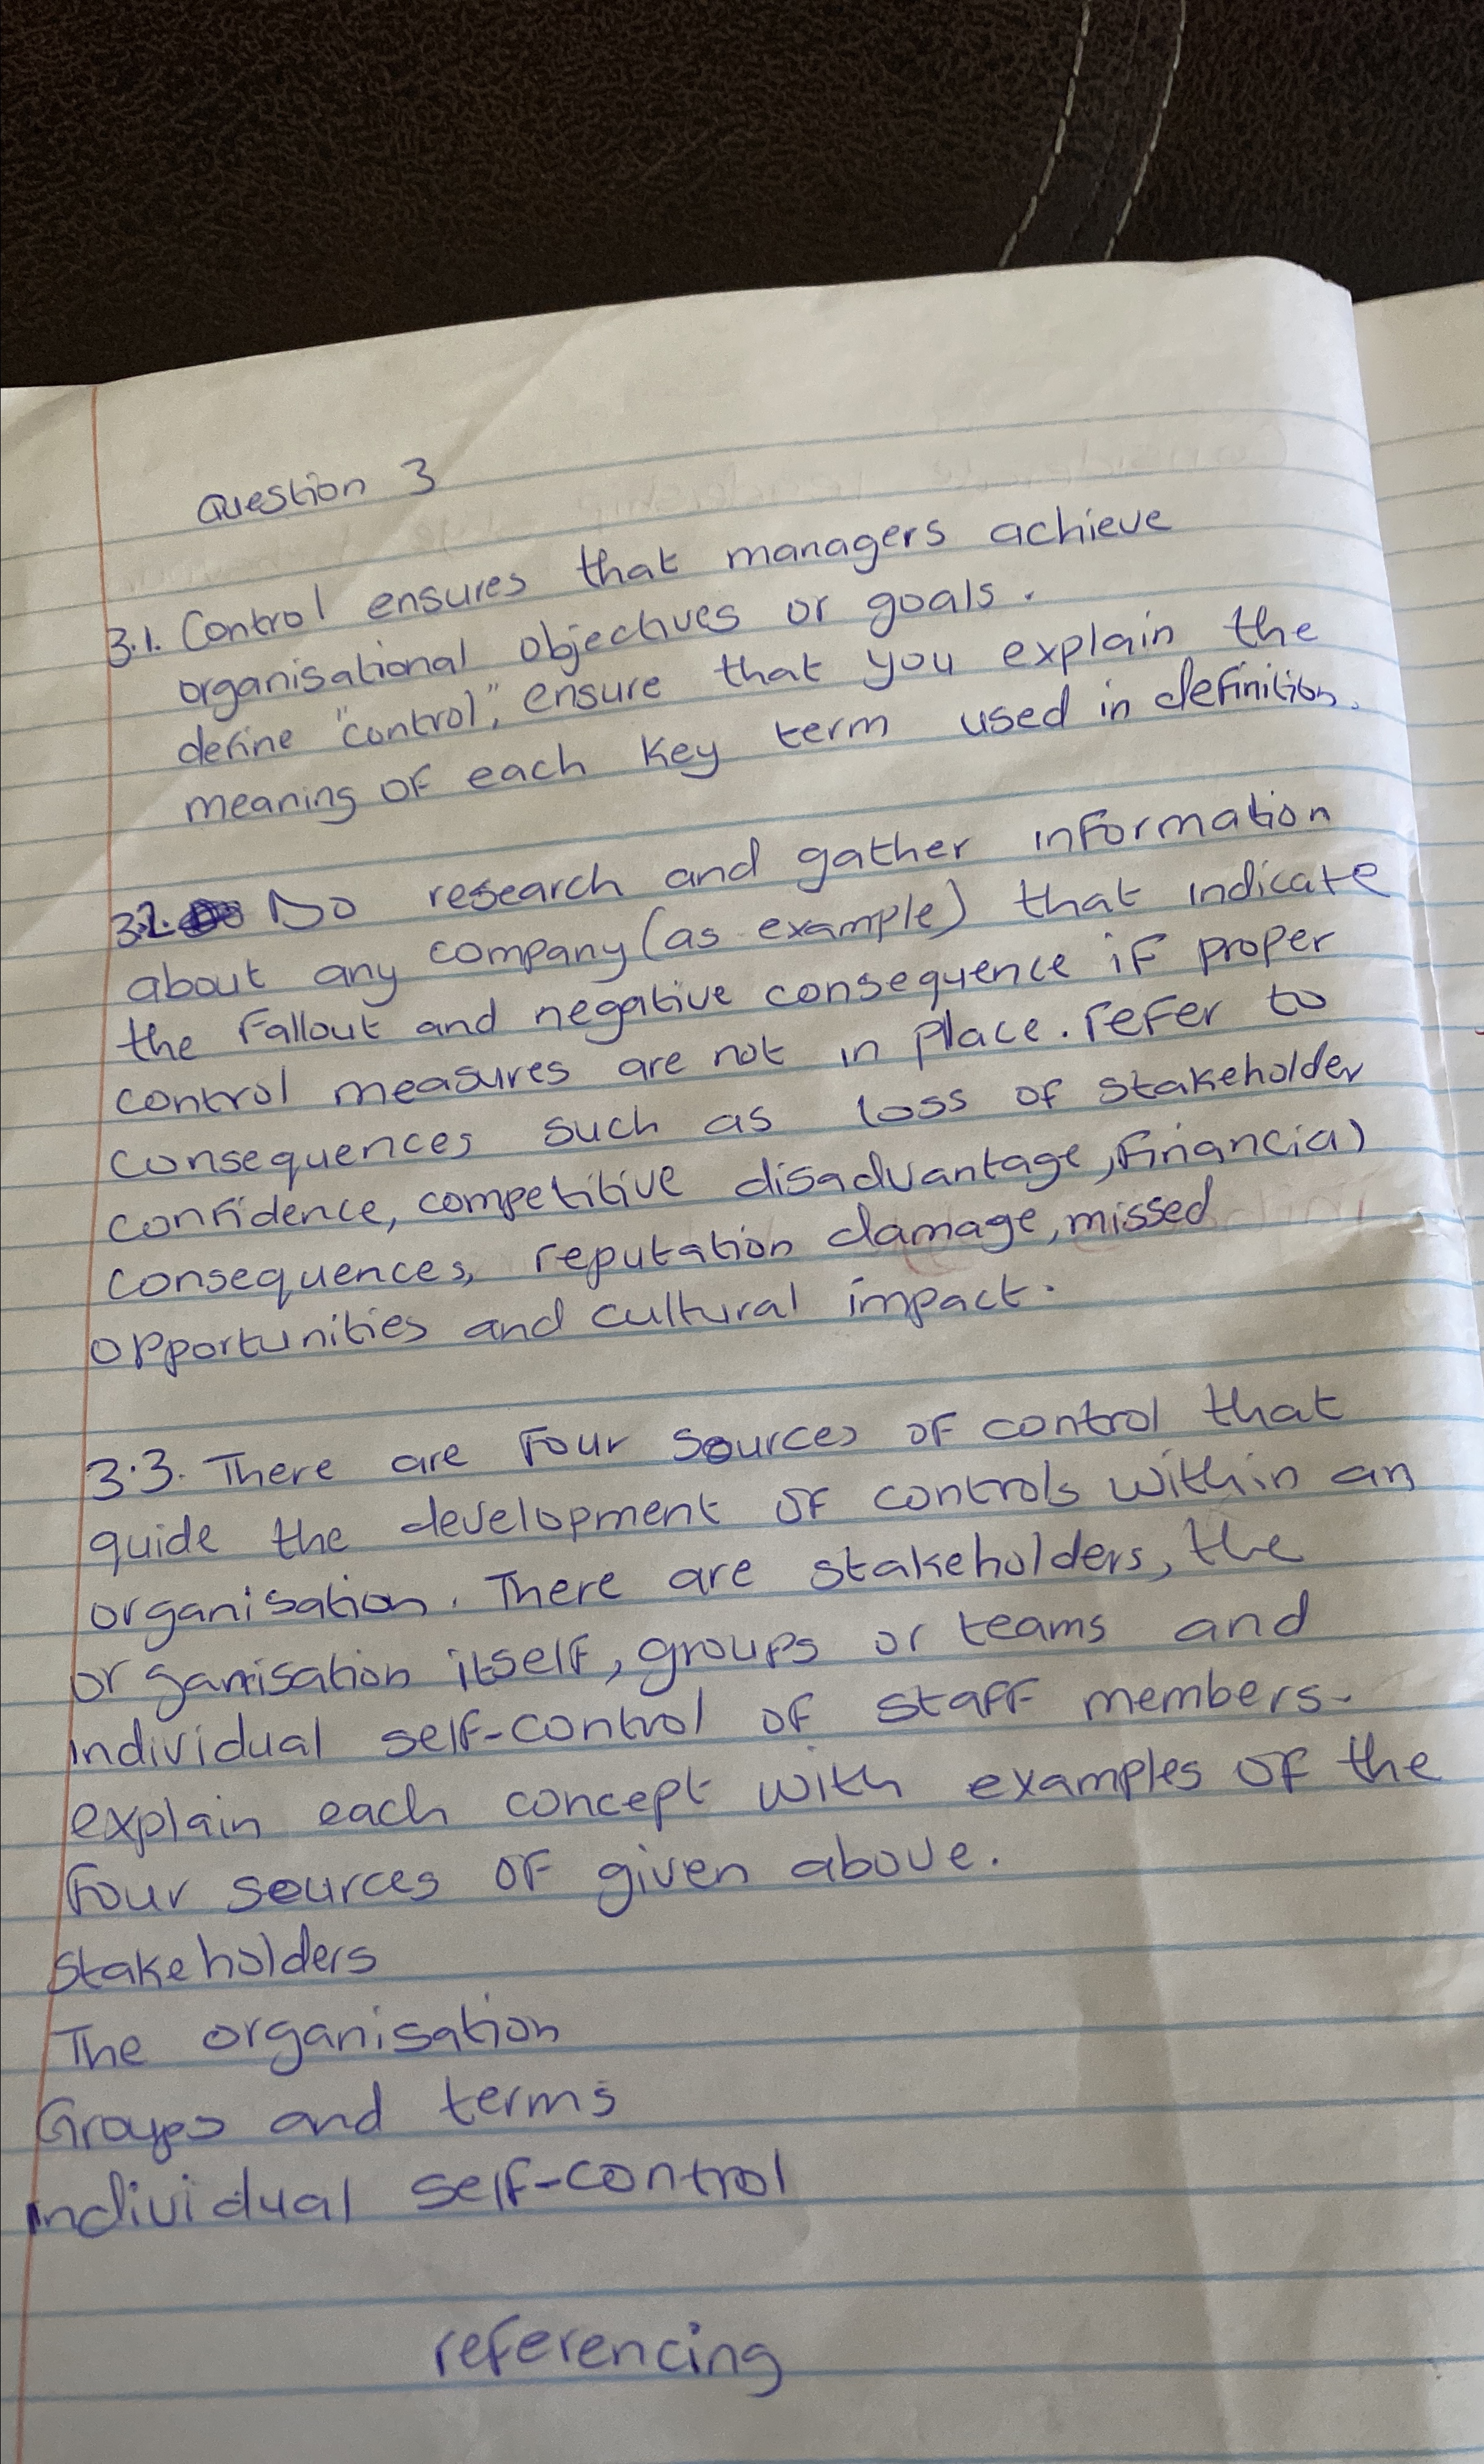 Question 3
3.1. Control ensures that managers achieve
organisational objectives or goals.
define "control," ensure that you explain the
meaning of each key term used in definition.
3.2. Do research and gather information
about any company (as example) that indicate
the fallout and negative consequence if proper
control measures are not in place. refer to
consequences such as loss of stakeholder
confidence, competitive disadvantage, financial
consequences, reputation damage, missed
opportunities and cultural impact.
3.3. There are four sources of control that
guide the development of controls within an
organisation. There are stakeholders, the
organisation itself, groups or teams and
individual self-control of staff members.
explain each concept with examples of the
four sources of given above.
stakeholders
The organisation
Groups and terms
individual self-control
referencing